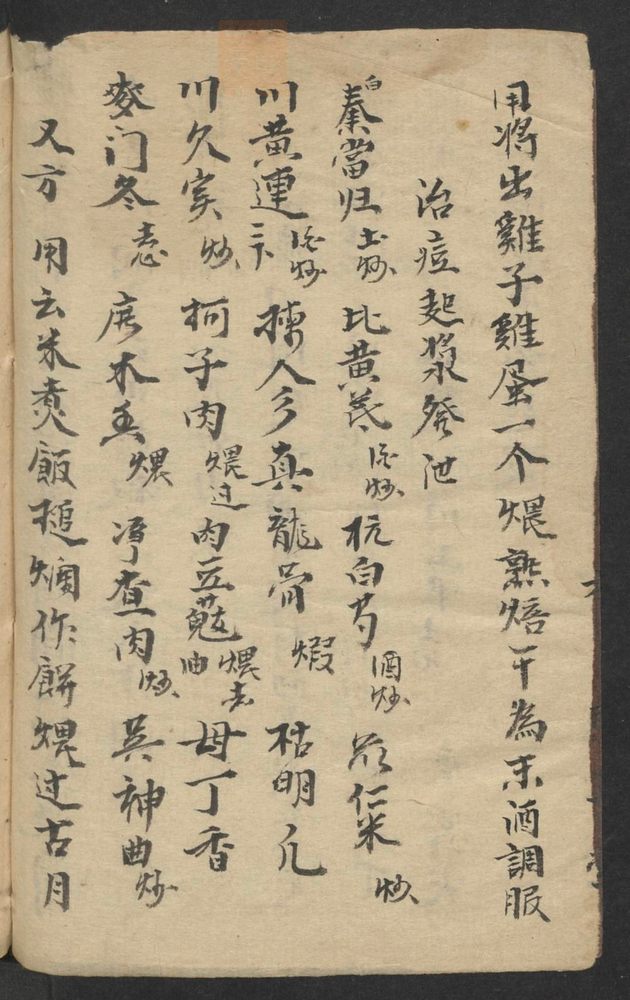 用將出雞子雞蛋一个煨熟焙干為末酒調服
治痘起漿發泄
白秦當归土炒 北黄芪 炒 杭白芍酒炒 仁米炒
川黄連 炒 揀人参 真龍骨煆 枯明凡
川久 炒 柯子肉煨过 肉豆蔻煨去油 母丁香
麥门冬去心 广木香煨 净查肉炒 英神曲炒
又方 用云米煑飯搥爛作餅煨过古月